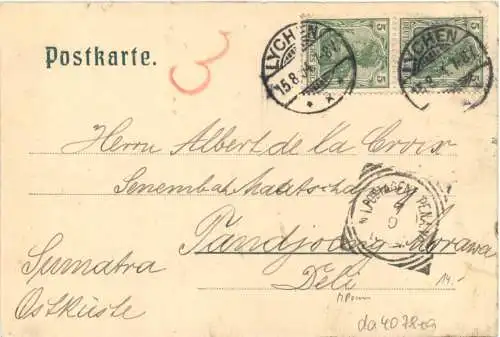 Postkarte.
3
LYCHEN
15.8.04
5
5
LYCHEN
5
5
Herrn Albert de la Croix
Senembah Maatschappij
Tandjong Morawa
Deli
Sumatra
Ostküste
14.-
da4078-09